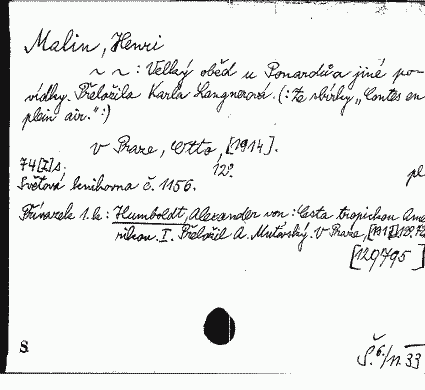 Malin, Henri
~ ~ : Velký oběd u Ponardů a jiné po-
vídky. Přeložila Karla Langnerová. (: Ze sbírky „Contes en
plein air.":)
v Praze, Otto, [1914].
74 [I] s, 12°.
pl
Světová knihovna č. 1156.
Přívazek 1. k: Humboldt, Alexander von: Cesta tropickou Ame
rikou. I. Přeložil A. Mutovský. V Praze,
[120795]
S.
Š. 6./11. 33